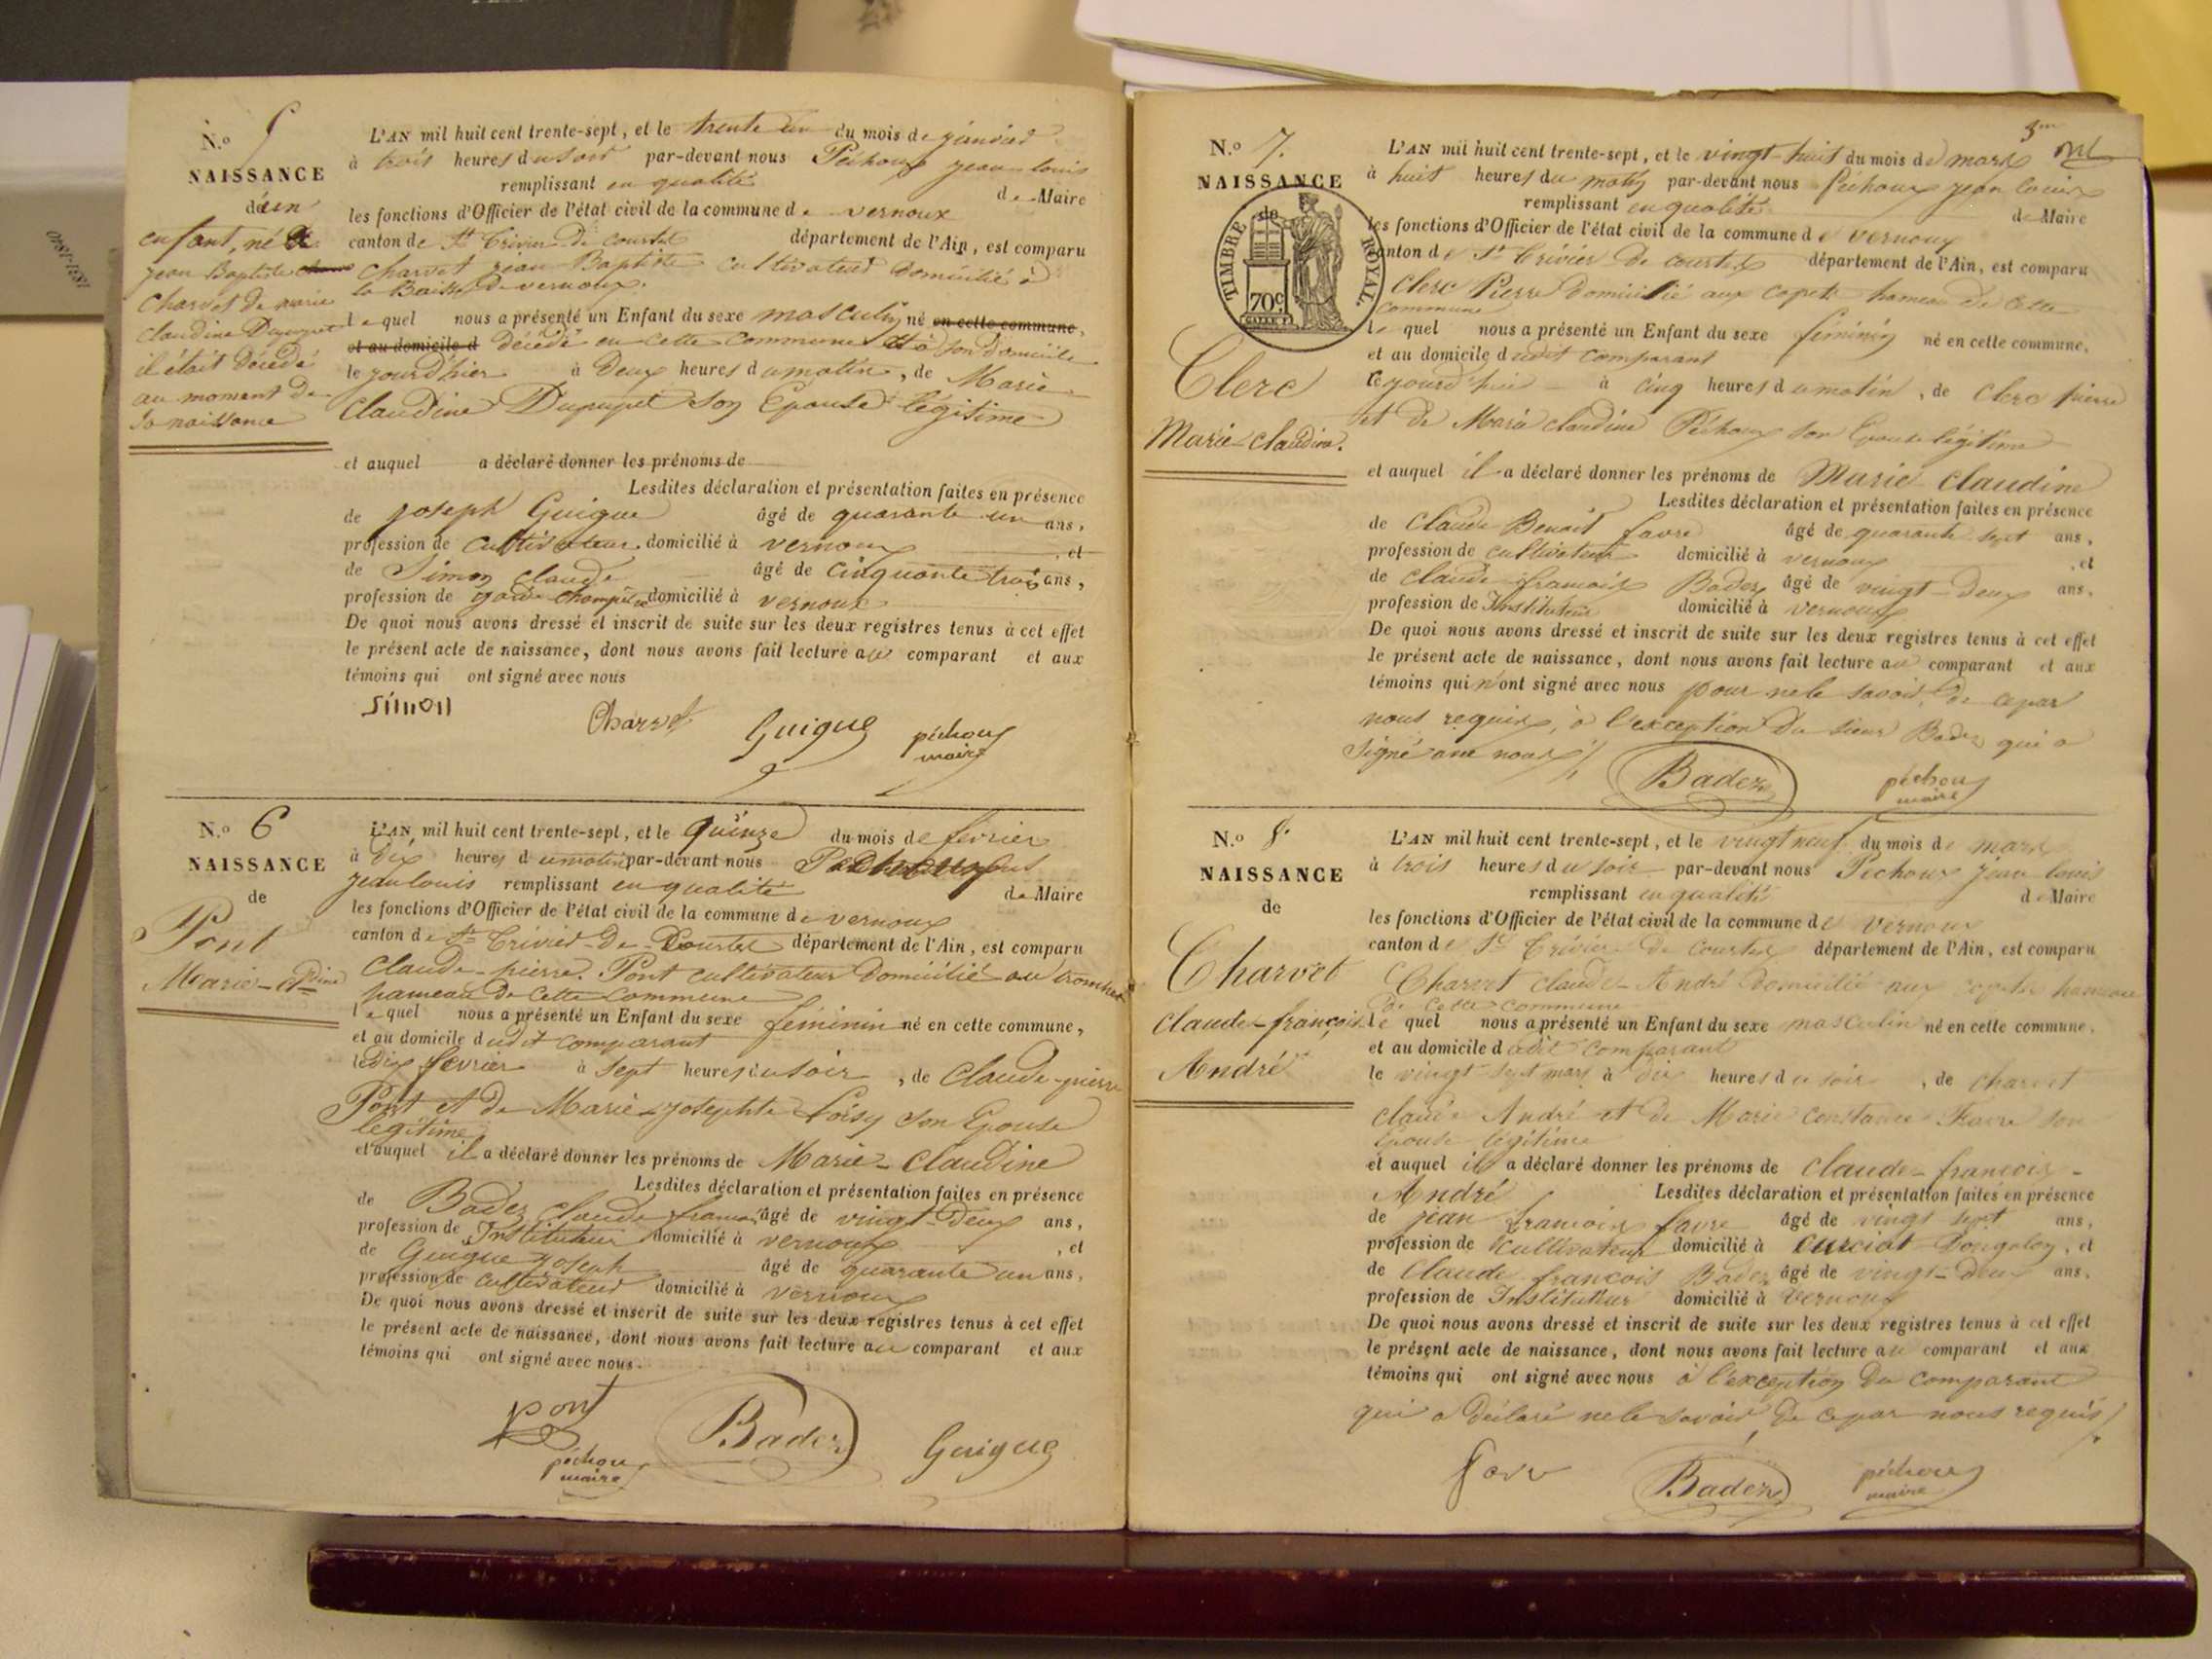 N.o 5
NAISSANCE
de un
enfant, né de
jean Baptiste
Charvet de marie
Claudine Dupupet
il était décédé
au moment de
sa naissance
L'AN mil huit cent trente-sept, et le trente un du mois de janvier
à trois heures du soir par-devant nous Péchoux jean louis
remplissant en qualité de Maire
les fonctions d'Officier de l'état civil de la commune de vernoux
canton de St Trivier De courtes département de l'Ain, est comparu
Charvet jean Baptiste cultivateur Domicilié à
la Baisse De vernoux.
lequel nous a présenté un Enfant du sexe masculin né en cette commune,
et au domicile d Décédé en cette commune et à son Domicile
le jour d'hier à Deux heures du matin, de Marie
Claudine Dupupet son Epouse légitime
et auquel a déclaré donner les prénoms de
Lesdites déclaration et présentation faites en présence
de joseph Guigue âgé de quarante un ans,
profession de cultivateur domicilié à vernoux, et
de Simon claude âgé de cinquante trois ans,
profession de garde champêtre domicilié à vernoux
De quoi nous avons dressé et inscrit de suite sur les deux registres tenus à cet effet
le présent acte de naissance, dont nous avons fait lecture au comparant et aux
témoins qui ont signé avec nous
Simon Charvet Guigue péchoux
maire
N.o 6
NAISSANCE
de
Pont
Marie-Cldine
L'AN mil huit cent trente-sept, et le Quinze du mois de fevrier
à Dix heures du matin par-devant nous Péchoux
jean louis remplissant en qualité de Maire
les fonctions d'Officier de l'état civil de la commune de vernoux
canton de St Trivier-De-Courtes département de l'Ain, est comparu
Claude-pierre Pont cultivateur Domicilié au
hameau De Cette Commune
lequel nous a présenté un Enfant du sexe féminin né en cette commune,
et au domicile dudit comparant
le Dix fevrier à sept heures du soir, de Claude-pierre
Pont et de Marie-josephte Loisy son Epouse
légitime
et auquel il a déclaré donner les prénoms de Marie-Claudine
Lesdites déclaration et présentation faites en présence
de Badez Claude francois âgé de vingt-Deux ans,
profession de Instituteur domicilié à vernoux, et
de Guigue joseph âgé de quarante un ans,
profession de cultivateur domicilié à vernoux
De quoi nous avons dressé et inscrit de suite sur les deux registres tenus à cet effet
le présent acte de naissance, dont nous avons fait lecture au comparant et aux
témoins qui ont signé avec nous.
pont Badez Guigue
péchoux
maire
3me
N.o 7.
NAISSANCE
de
TIMBRE ROYAL.
70c
Clerc
Marie-claudine.
L'AN mil huit cent trente-sept, et le vingt-huit du mois de mars
à huit heures du matin par-devant nous Péchoux jean louis
remplissant en qualité de Maire
les fonctions d'Officier de l'état civil de la commune de vernoux
canton de St Trivier De courtes département de l'Ain, est comparu
Clerc Pierre Domicilié aux capets hameau De Cette
commune
lequel nous a présenté un Enfant du sexe féminin né en cette commune,
et au domicile dudit comparant
ce jourd'hui à cinq heures du matin, de Clerc pierre
et de Marie claudine Péchoux son Epouse légitime
et auquel il a déclaré donner les prénoms de Marie Claudine
Lesdites déclaration et présentation faites en présence
de Claude Benoit favre âgé de quarante sept ans,
profession de cultivateur domicilié à vernoux, et
de Claude francois Badez âgé de vingt-Deux ans.
profession de Instituteur domicilié à vernoux
De quoi nous avons dressé et inscrit de suite sur les deux registres tenus à cet effet
le présent acte de naissance, dont nous avons fait lecture au comparant et aux
témoins qui n'ont signé avec nous pour ne le savoir, De ce par
nous requis, à l'exception Du sieur Badez qui a
signé avec nous
Badez péchoux
maire
N.o 8.
NAISSANCE
de
Charvet
Claude-françois
André
L'AN mil huit cent trente-sept, et le vingt neuf du mois de mars
à trois heures du soir par-devant nous Péchoux jean louis
remplissant en qualité de Maire
les fonctions d'Officier de l'état civil de la commune de vernoux
canton de St Trivier De courtes département de l'Ain, est comparu
Charvet Claude-André Domicilié aux capets hameau
De Cette commune
lequel nous a présenté un Enfant du sexe masculin né en cette commune,
et au domicile dudit comparant
le vingt sept mars à dix heures du soir, de charvet
claude André et De Marie constance Favre son
Epouse légitime
et auquel il a déclaré donner les prénoms de Claude-francois-
André Lesdites déclaration et présentation faites en présence
de jean francois favre âgé de vingt sept ans,
profession de cultivateur domicilié à curciat Dongalon, et
de Claude francois Badez âgé de vingt-Deux ans.
profession de Instituteur domicilié à vernoux
De quoi nous avons dressé et inscrit de suite sur les deux registres tenus à cet effet
le présent acte de naissance, dont nous avons fait lecture au comparant et aux
témoins qui ont signé avec nous à l'exception Du comparant
qui a Déclaré ne le savoir, De ce par nous requis
Badez péchoux
maire